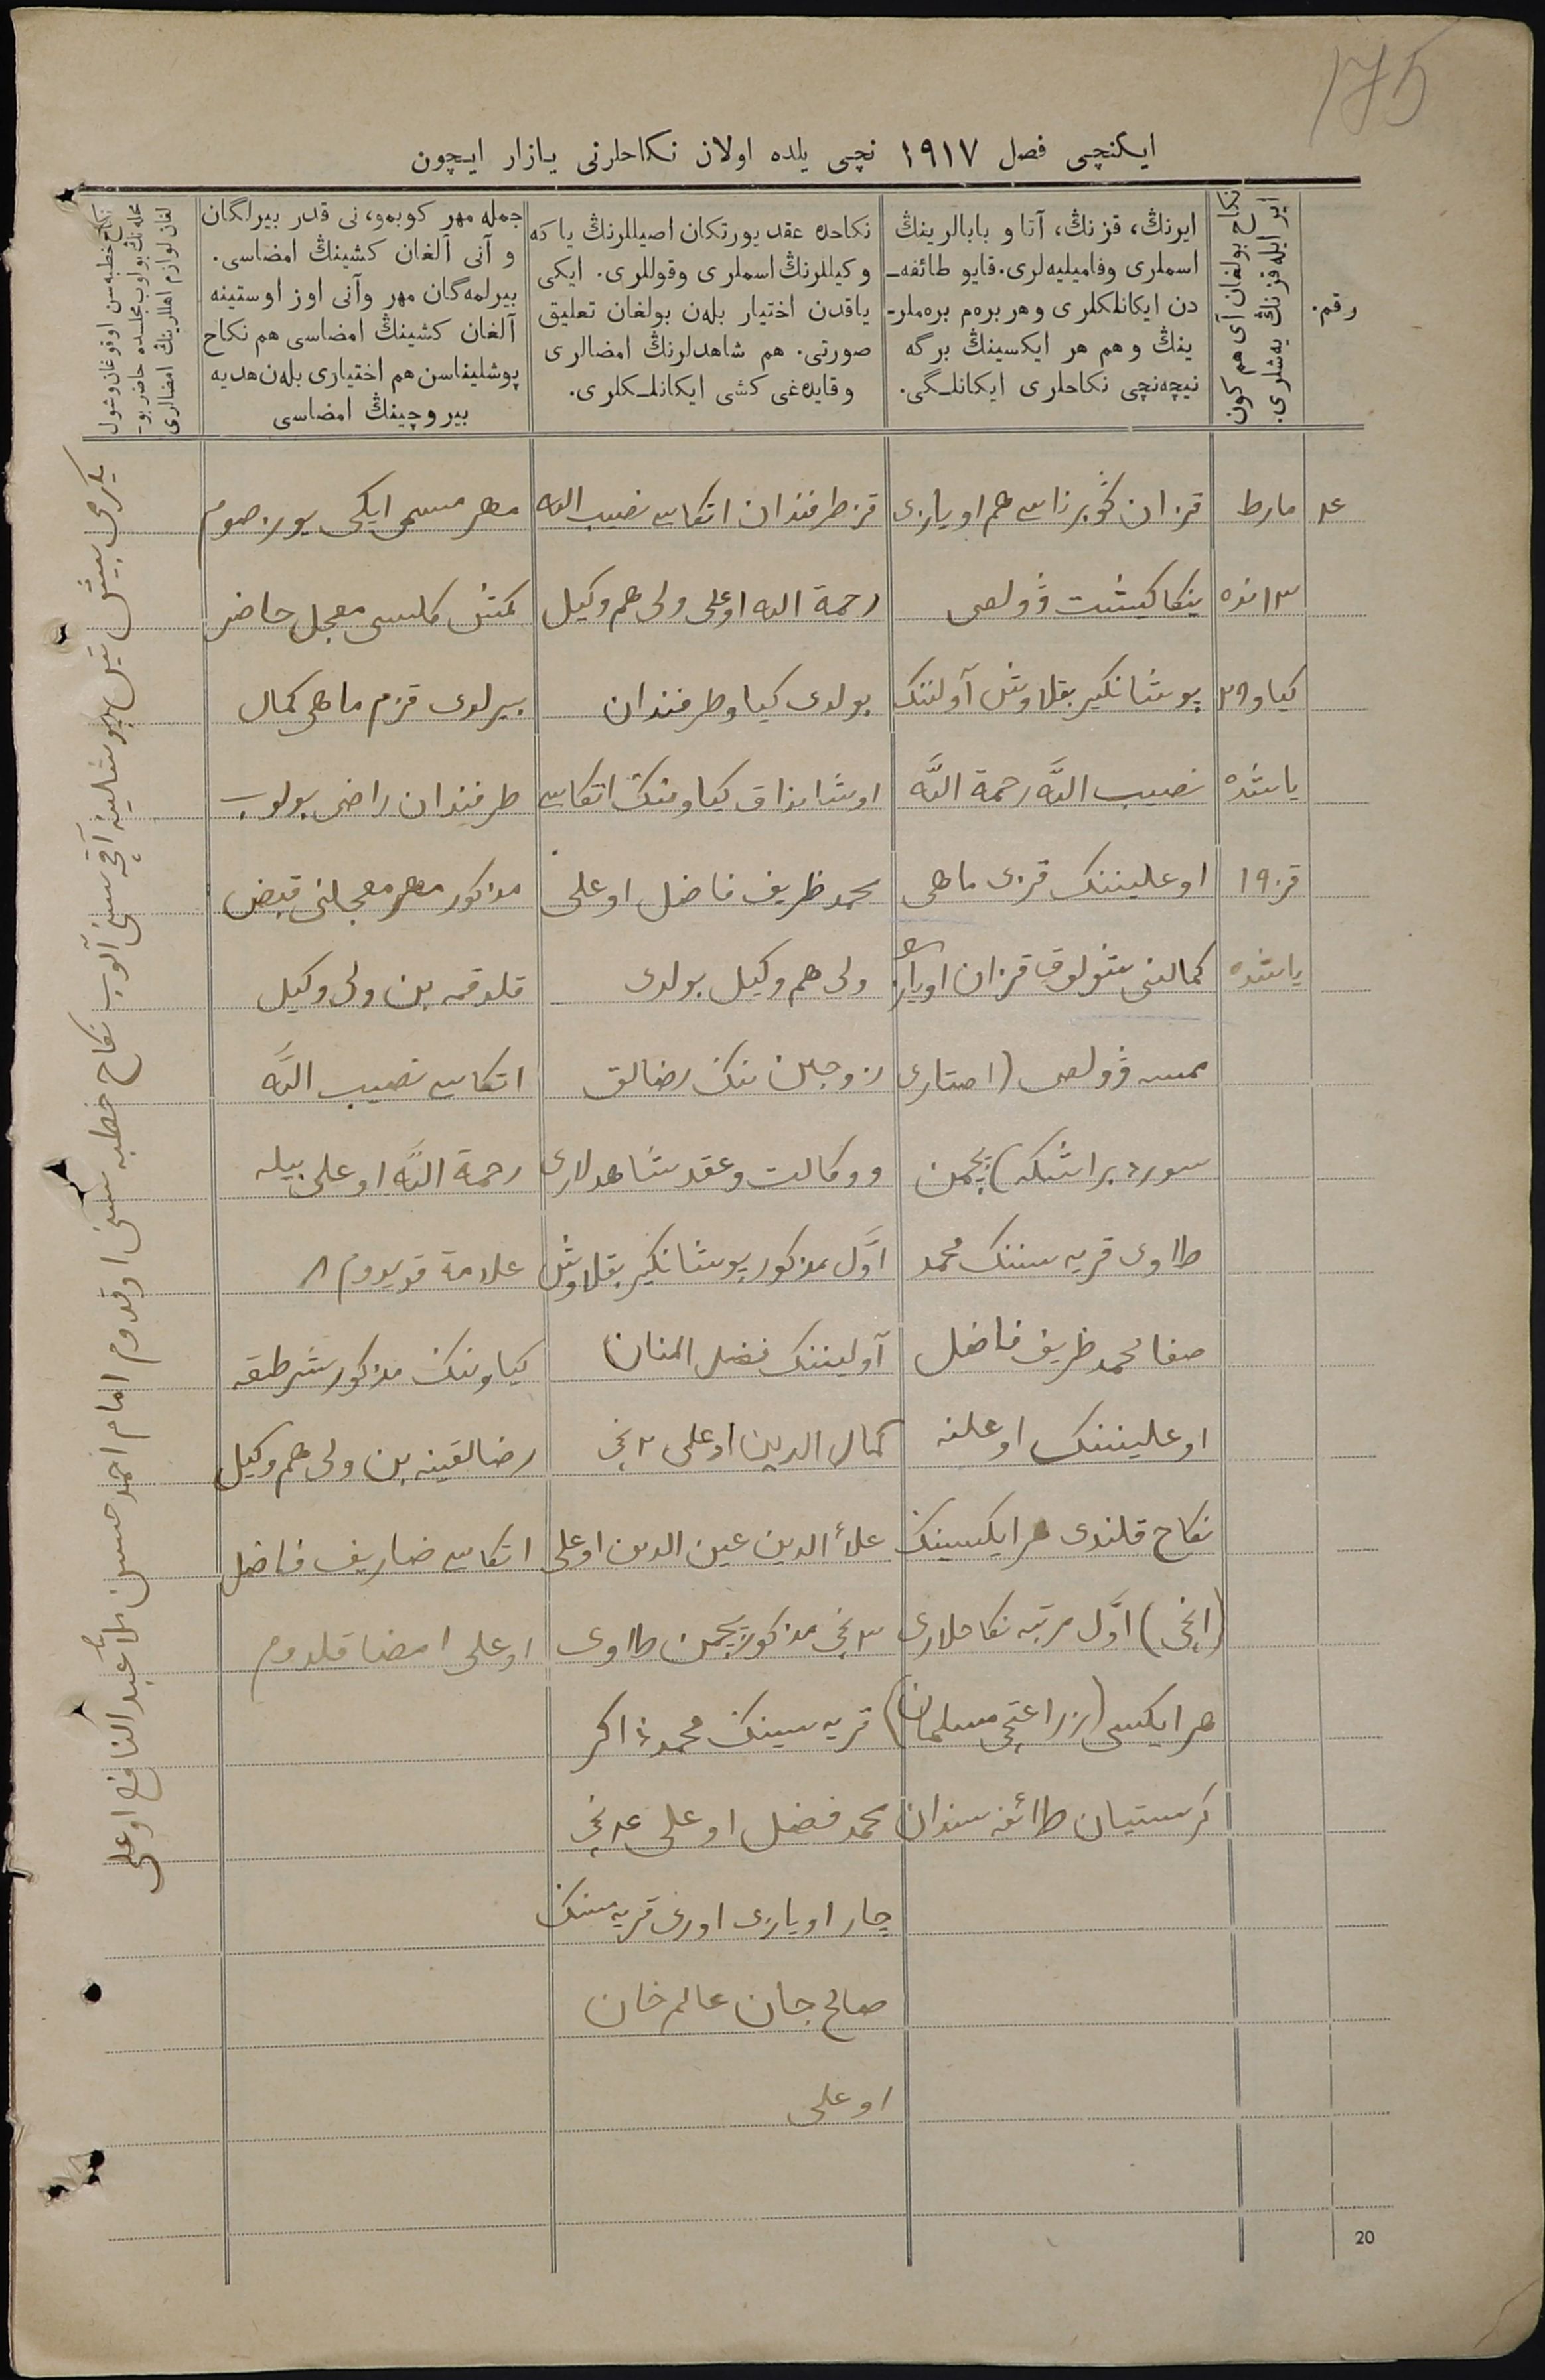 175
ایكنچی فصل ١٩١٧ نچی یلده اولان نكاحلرنی یازار ایچون
رقم.
نكاح بولغان آی هم كون
ایر ایله قزنڭ یه‌شلری.
ایرنڭ، قزنڭ، آتا و بابالرینڭ
اسملری وفامیلیه‌لری. قایو طائفه‌ـ
دن ایكانلكلری وهر بره‌م بره‌ملر‌ـ
ینڭ وهم هر ایكسینڭ برگه
نیچه‌نچی نكاحلری ایكانلـگی.
نكاحده عقد یورتكان اصیللرنڭ یاكه
وكیللرنڭ اسملری وقوللری. ایكی
یاقدن اختیار بله‌ن بولغان تعلیق
صورتی. هم شاهدلرنڭ امضالری
وقایده‌غی كشی ایكانلـكلری.
جمله مهر كوبمو، نی قدر بیرلگان
و آنی آلغان كشینڭ امضاسی.
بیرلمه‌گان مهر وآنی اوز اوستینه
آلغان كشینڭ امضاسی هم نكاح
پوشلیناسن هم اختیاری بله‌ن هدیه
بیروچینڭ امضاسی
نكاح خطبه‌سن اوقوغان وشول
محله‌نڭ بولوب مجلسده حاضر بو‌ـ
لغان لوازم اهللرینڭ امضالری
٤
مارط
١٣نده
كیاو ٢٨
یاشده
قز ١٩
یاشده
قزان گوبرناسی هم اویازی
ینكاكیشت ڤولصی
پوشانگیر بقلاوش آولننك
نصیب اللّٰه رحمة اللّٰه
اوغلیننك قزی ماهی
كمالنی شولوق قزان اویازی
ممسه ڤولصی (اصتاری
سورد براشكه) یحمن
طاوی قریه سننك محمد
صفا محمد ظریف فاضل
اوغلیننك اوغلنه
نكاح قلندی هر ایكسینك
(١نچی) اوّل مرتبه نكاحلاری
هر ایكسی (زراعتچی مسلمان)
كرستیان طائفه سندان
قز طرفندان اتكاسی نصیب الله
رحمة الله اوغلی ولی هم وكیل
بولدی كیاو طرفندان
اوشانداق كیاوننك اتكاسی
محمد ظریف فاضل اوغلی
ولی هم وكیل بولدی
زوجین ننك رضالق
ووكالت وعقد شاهدلاری
اوّل مذكور پوشانگیر بقلاوش
آولیننك فضل المنان
كمال الدین اوغلی ٢نچی
علأ الدین عین الدین اوغلی
٣نچی مذكور یحمن طاوی
قریه سینك محمد ذاكر
محمد فضل اوغلی ٤نچی
چار اویازی اوری قریه سننك
صالح جان عالم خان
اوغلی
مهر مسمی ایكی یوز صوم
كمش كلیسی معجل حاضر
بیرلدی قزم ماهی كمال
طرفندان راضی بولوب
مذكور مهر معجلنی قبض
قلدقمه بن ولی وكیل
اتكاسی نصیب اللّٰه
رحمة اللّٰه اوغلی بیله
علامة قویدوم
كیاوننك مذكور شرطقه
رضالقینه بن ولی هم وكیل
اتكاسی ضاریف فاضل
اوغلی امضا قلدوم
یكرمی بیش تین پوشلینه آقچه سنی آلوب نكاح خطبه سنی اوقدوم امام احمد حسین ملا عبد النافع اوغلی
20